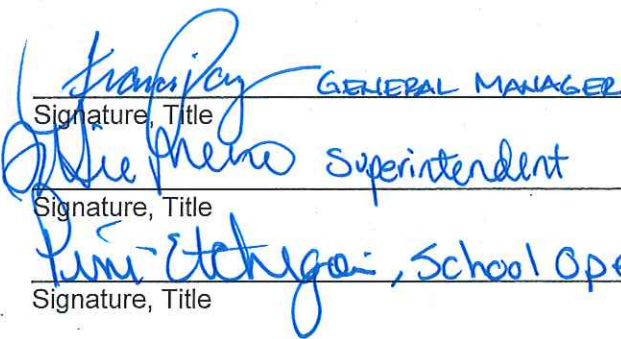 GENERAL MANAGER
Signature, Title
Superintendent
Signature, Title
Etchegoin, School Ope
Signature, Title